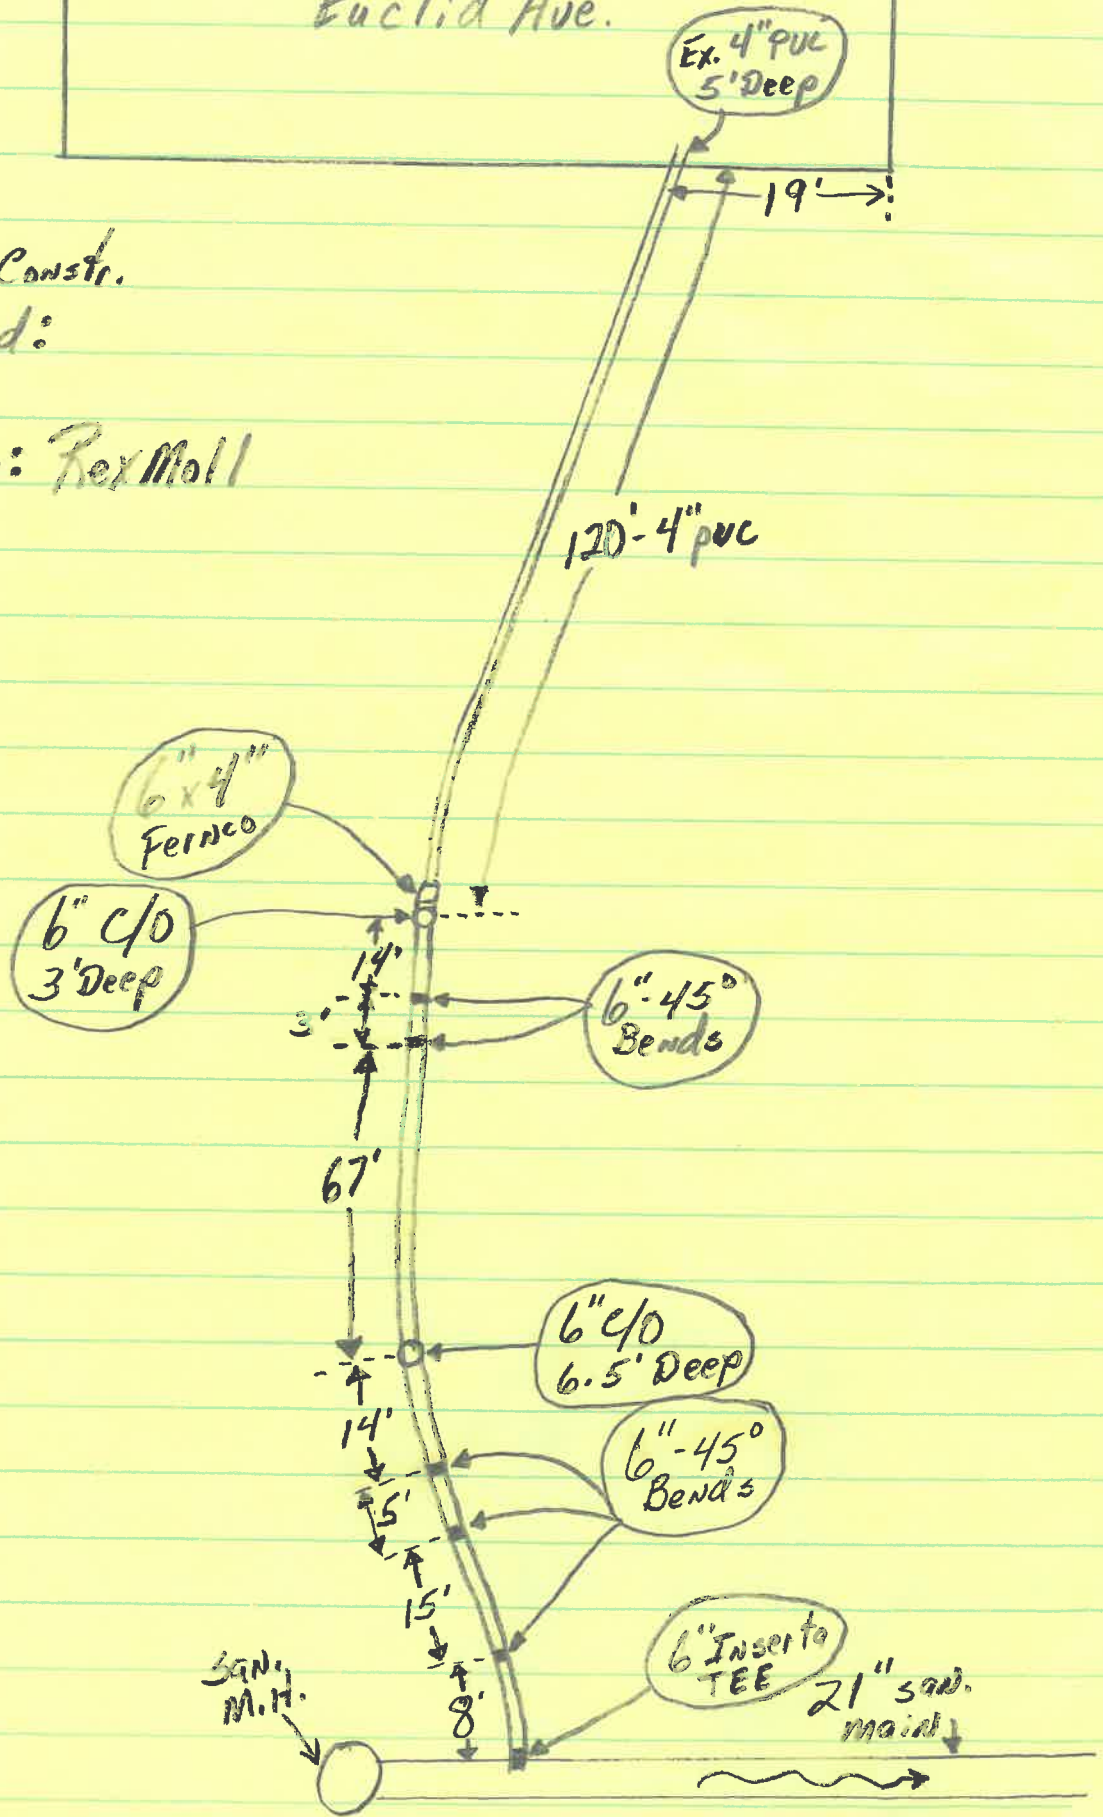 Euclid Ave.
Ex. 4" PVC
5' Deep
19'
Constr.
d:
: Rex Moll
120'- 4" PVC
6" x 4"
Fernco
6" C/O
3' Deep
14'
3'
6"-45°
Bends
67'
6" C/O
6.5' Deep
14'
6"-45°
Bends
5'
15'
6" Inserta
TEE
San.
M.H.
8'
21" San.
main